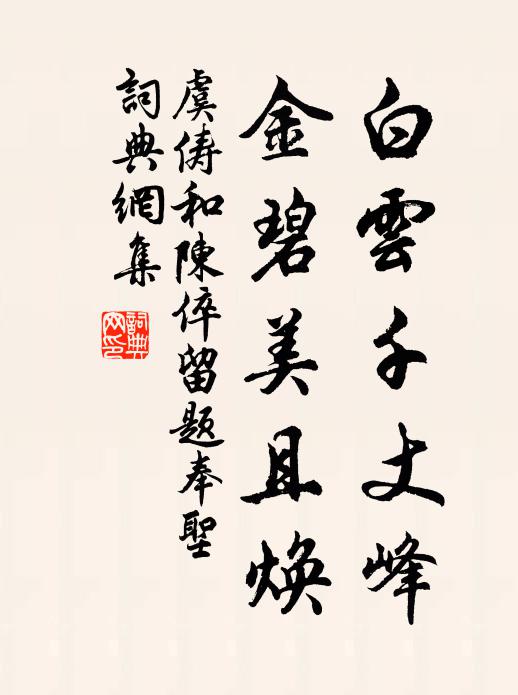 白雲千丈峰
金碧美且煥
虞儔和陳倅留題奉聖
詞典網集
詞典網印